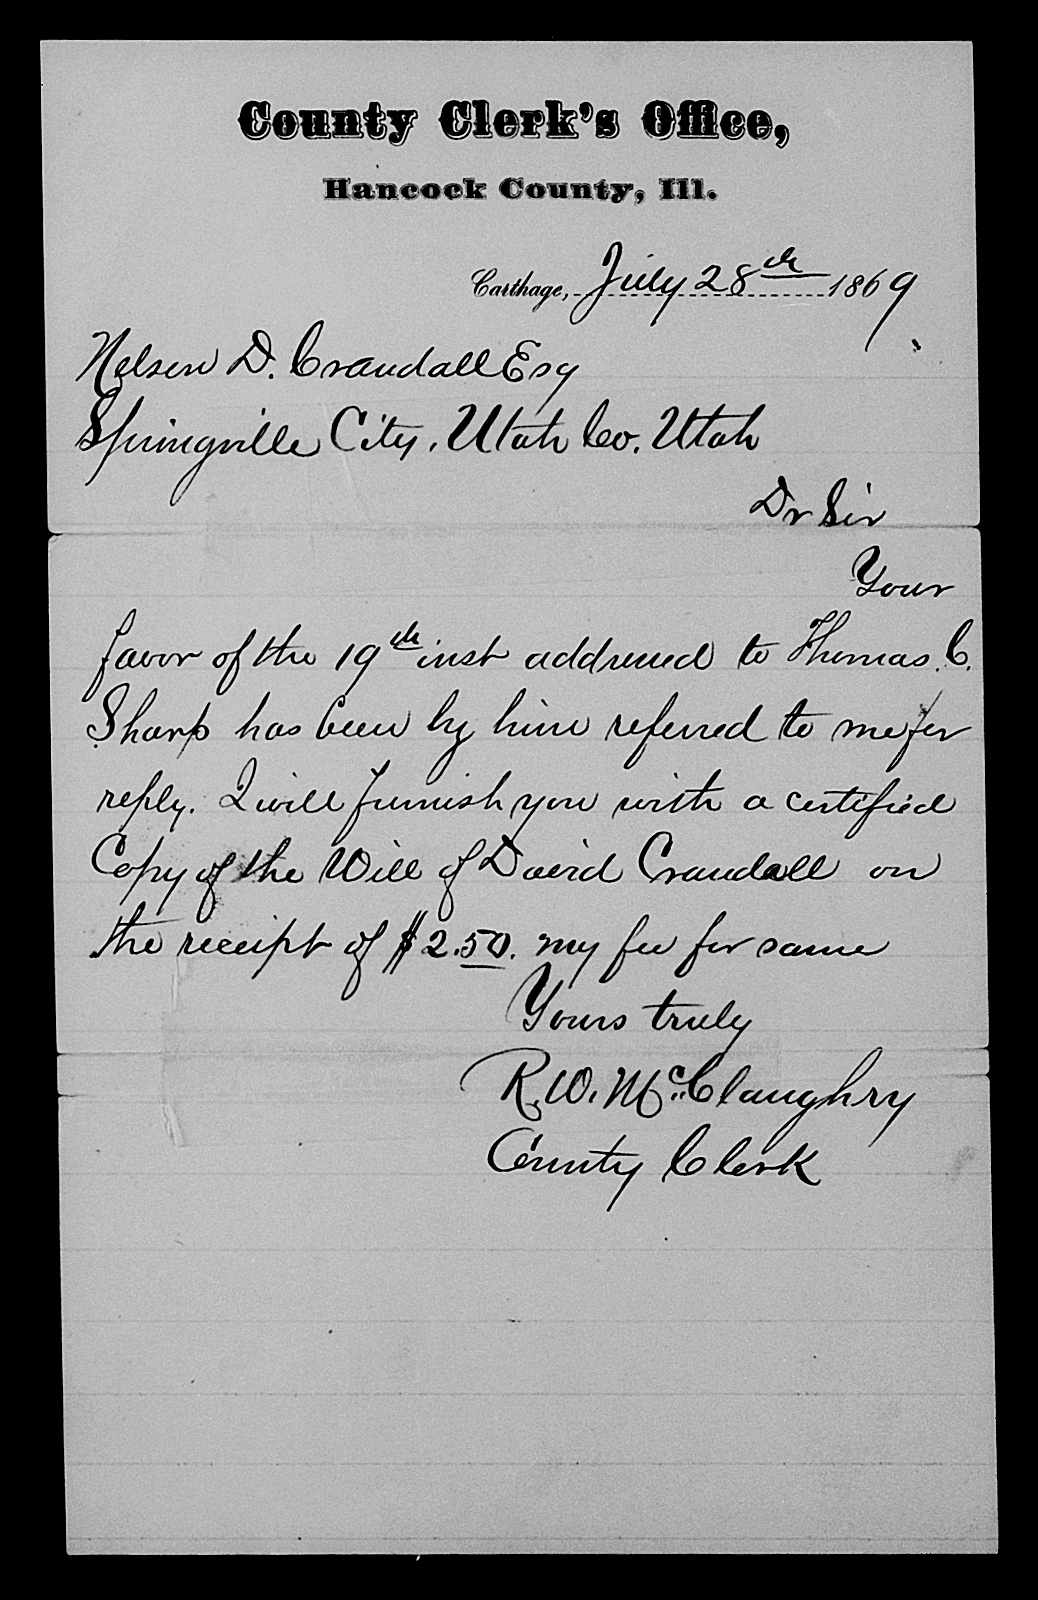 County Clerk's Office,
Hancock County, Ill.
Carthage, July 28th 1869
Nelson D. Crandall Esq
Springville City, Utah Co. Utah
Dr Sir
Your
favor of the 19th inst addressed to Thomas C.
Sharp has been by him referred to me for
reply. I will furnish you with a certified
Copy of the Will of David Crandall on
the receipt of $2.50. my fee for same
Yours truly
R. W. McClaughry
County Clerk